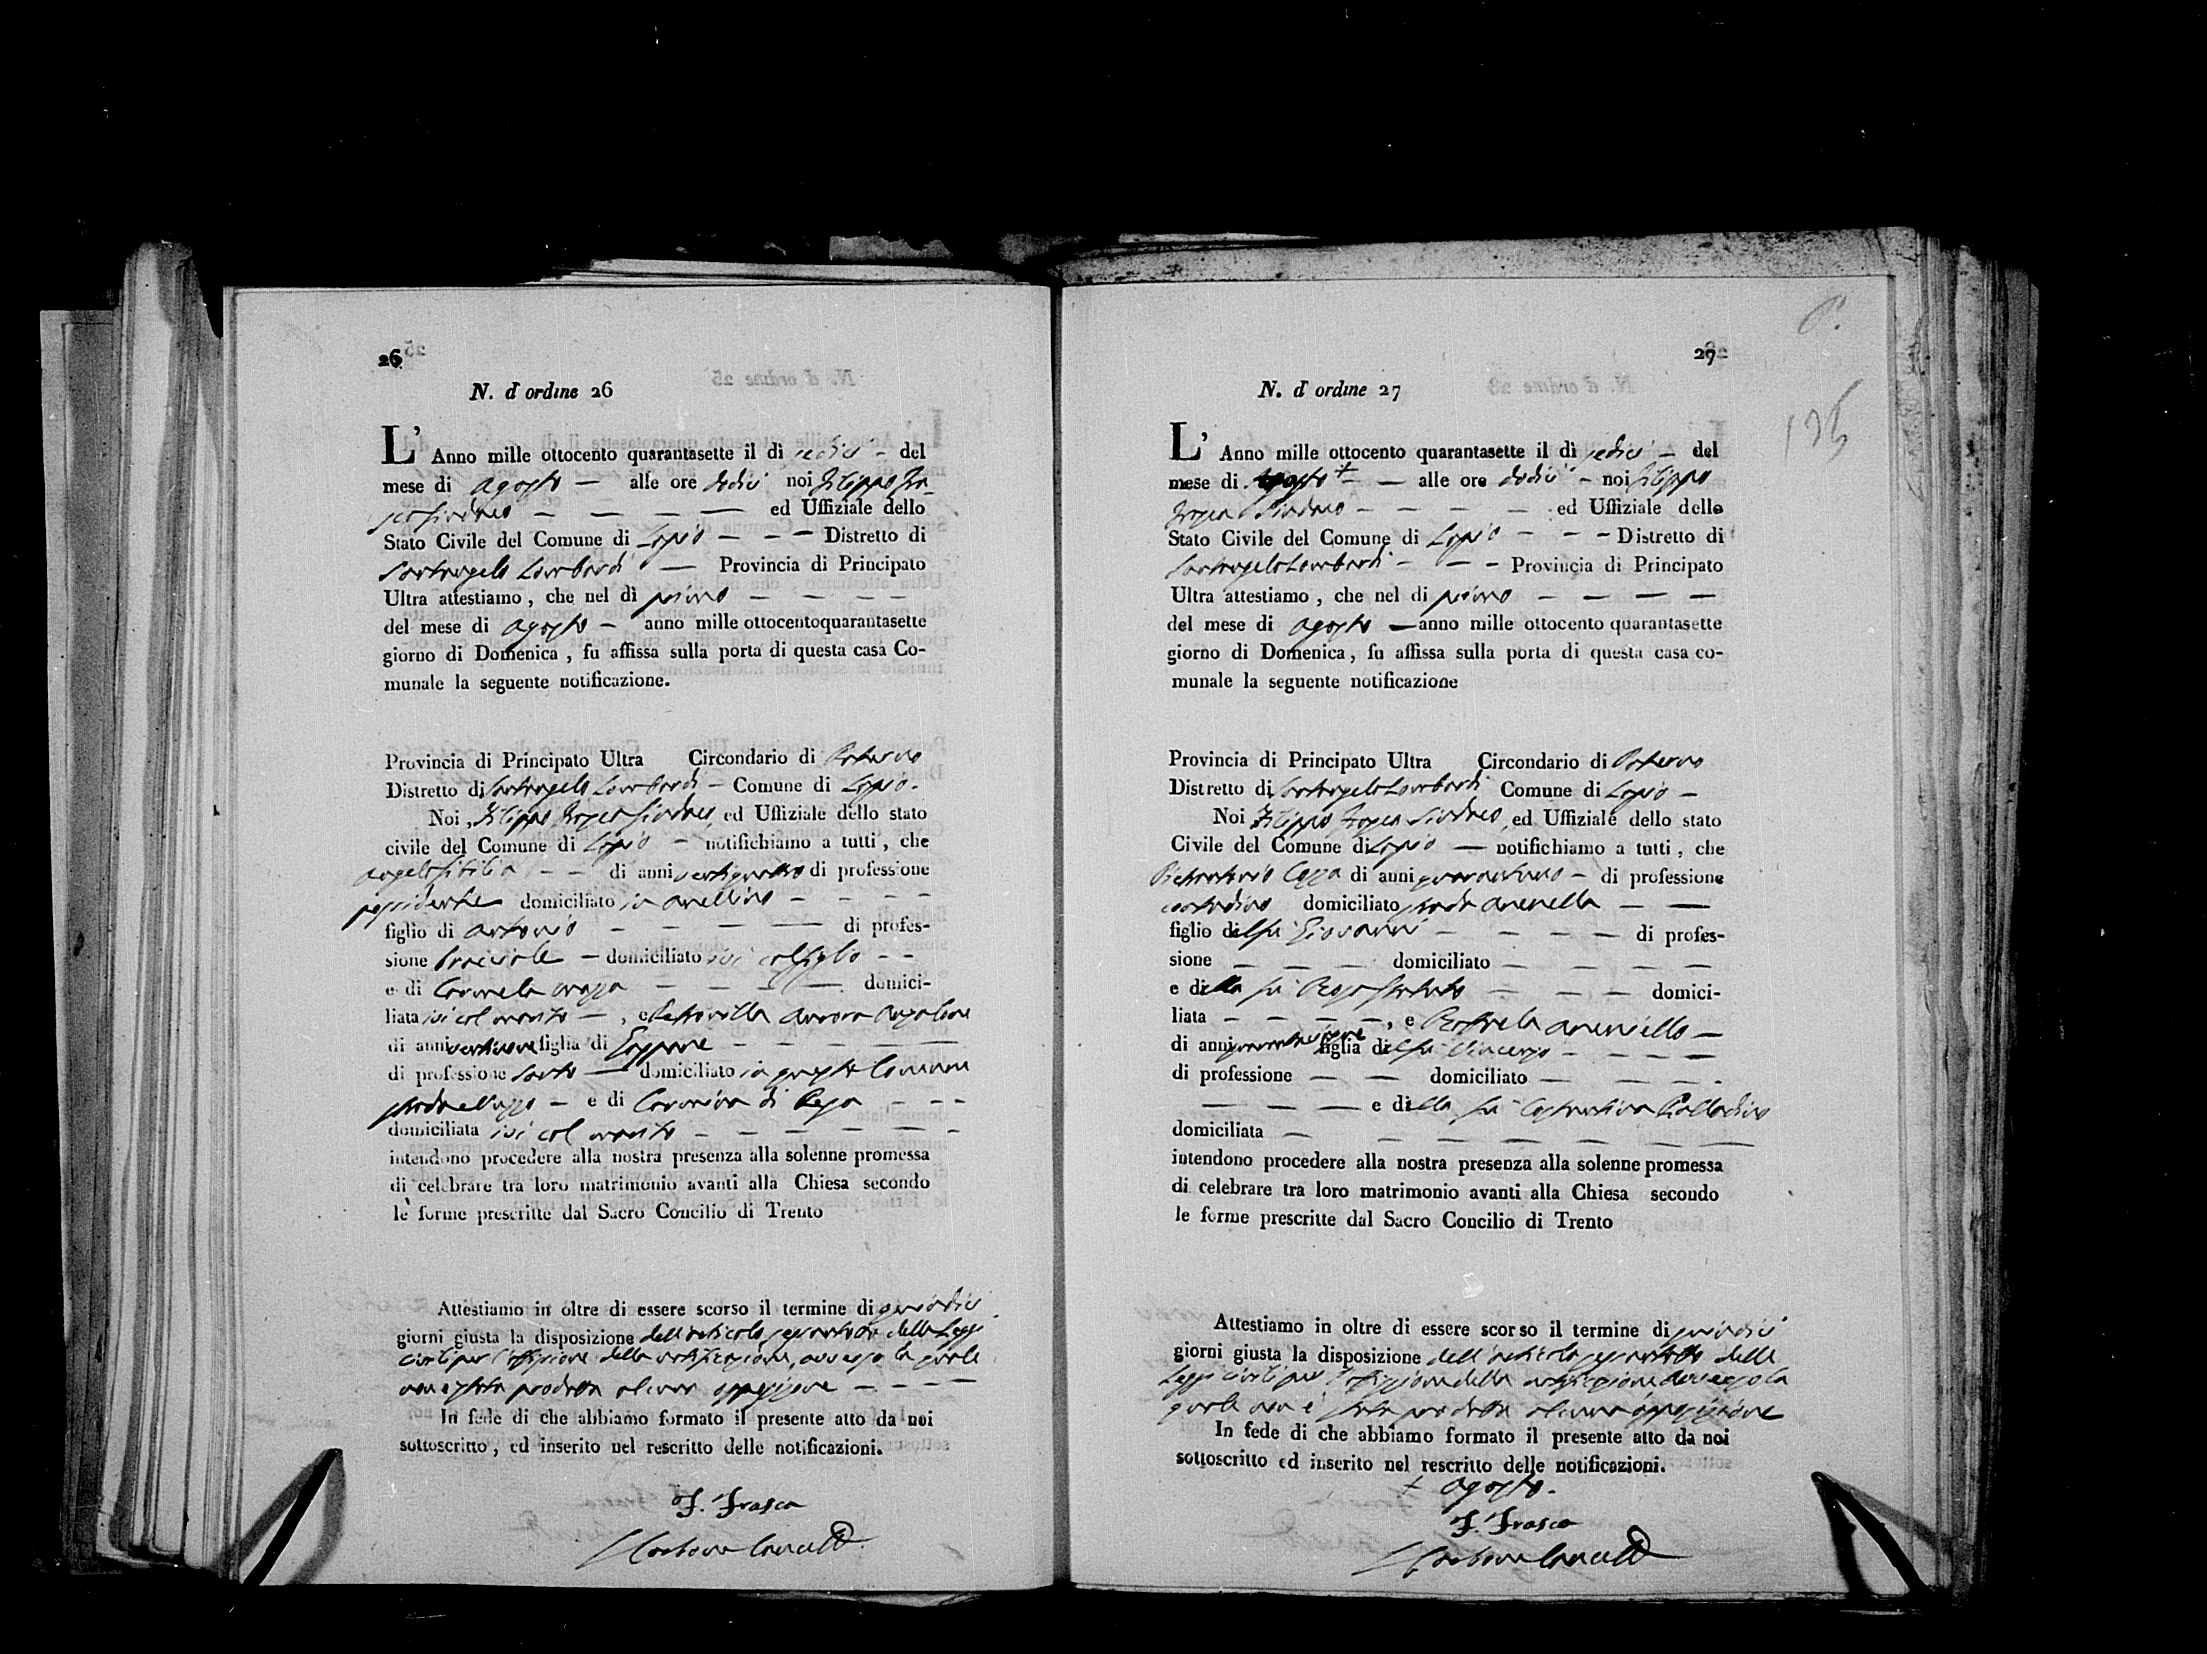 26
N. d'ordine 26
L' Anno mille ottocento quarantasette il dì sedici – del
mese di Agosto – alle ore dodici noi Filippo Fra-
sca Sindaco – – – – ed Uffiziale dello
Stato Civile del Comune di Lapio – – – Distretto di
Santangelo Lombardi – Provincia di Principato
Ultra attestiamo, che nel dì primo – – – –
del mese di Agosto – anno mille ottocentoquarantasette
giorno di Domenica, fu affissa sulla porta di questa casa Co-
munale la seguente notificazione.
Provincia di Principato Ultra Circondario di Paterno
Distretto di Santangelo Lombardi – Comune di Lapio.
Noi, Filippo Frasca Sindaco, ed Uffiziale dello stato
civile del Comune di Lapio – notifichiamo a tutti, che
Angelo – – di anni ventiquattro di professione
possidente domiciliato in Avellino – – – –
figlio di Antonio – – – – di profes-
sione domiciliato ivi col figlio – –
e di Carmela – – – – domici-
liata ivi col marito –, e Petronilla
di anni figlia di – – – – –
di professione Sarto – domiciliato in questo Comune
strada – e di di – – –
domiciliata ivi col marito – – – – – –
intendono procedere alla nostra presenza alla solenne promessa
di celebrare tra loro matrimonio avanti alla Chiesa secondo
le forme prescritte dal Sacro Concilio di Trento
Attestiamo in oltre di essere scorso il termine di quindici
giorni giusta la disposizione dell'articolo sessantotto delle Leggi
civili per l'affissione della notificazione, avverso la quale
non è stata prodotta alcuna opposizione – – – –
In fede di che abbiamo formato il presente atto da noi
sottoscritto, ed inserito nel rescritto delle notificazioni.
F. Frasca
27
N. d'ordine 27
L' Anno mille ottocento quarantasette il dì sedici – del
mese di Agosto + – alle ore dodici – noi Filippo
Frasca Sindaco – – – – ed Uffiziale dello
Stato Civile del Comune di Lapio – – – Distretto di
Santangelo Lombardi – – – Provincia di Principato
Ultra attestiamo, che nel dì primo – – – –
del mese di Agosto – anno mille ottocento quarantasette
giorno di Domenica, fu affissa sulla porta di questa casa co-
munale la seguente notificazione
Provincia di Principato Ultra Circondario di Paterno
Distretto di Santangelo Lombardi Comune di Lapio –
Noi Filippo Frasca Sindaco, ed Uffiziale dello stato
Civile del Comune di Lapio – notifichiamo a tutti, che
di anni – di professione
contadino domiciliato strada – –
figlio del fu Giovanni – – – – – di profes-
sione – – – domiciliato – – – –
e della fu – – – domici-
liata – – – –, e
di anni figlia del fu Vincenzo – – – –
di professione – – domiciliato – – – –
– – – e della fu
domiciliata – – – – – – –
intendono procedere alla nostra presenza alla solenne promessa
di celebrare tra loro matrimonio avanti alla Chiesa secondo
le forme prescritte dal Sacro Concilio di Trento
Attestiamo in oltre di essere scorso il termine di quindici
giorni giusta la disposizione dell'articolo sessantotto delle
Leggi civili per l'affissione della notificazione avverso la
quale non è stata prodotta alcuna opposizione
In fede di che abbiamo formato il presente atto da noi
sottoscritto ed inserito nel rescritto delle notificazioni.
+ Agosto.
F. Frasca